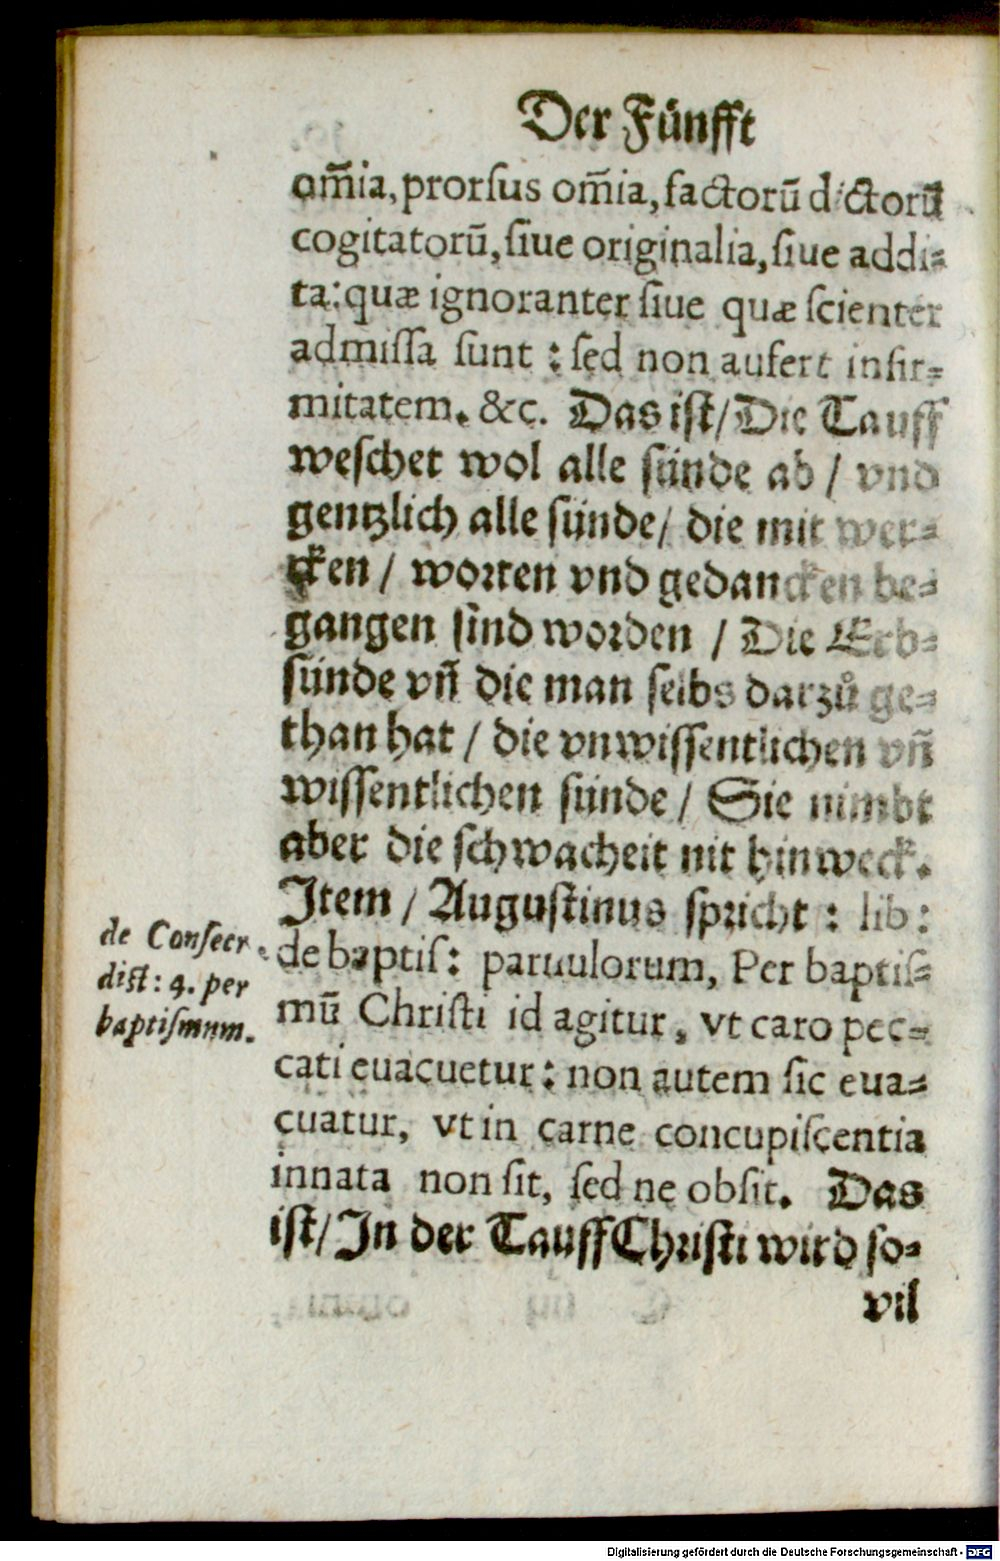 Der Fünfft
om̃ia, prorſus om̃ia, factorũ dictorũ
cogitatorũ, ſiue originalia, ſiue addi⸗
ta: quæ ignoranter ſiue quæ ſcienter
admiſſa ſunt: ſed non aufert infir⸗
mitatem. &c. Das iſt/ Die Tauff
weſchet wol alle ſünde ab / vnd
gentzlich alle ſünde/ die mit wer⸗
cken / worten vnd gedancken be⸗
gangen ſind worden / Die Erb⸗
ſünde vñ die man ſelbs darzů ge⸗
than hat / die vnwiſſentlichen vñ
wiſſentlichen ſünde / Sie nimbt
aber die ſchwacheit nit hinweck.
Item / Auguſtinus ſpricht: lib:
de baptiſ: paruulorum, Per baptiſ⸗
mũ Chriſti id agitur, vt caro pec⸗
cati euacuetur: non autem ſic eua⸗
cuatur, vt in carne concupiſcentia
innata non ſit, ſed ne obſit. Das
iſt/ In der Tauff Chriſti wird ſo⸗
vil
de Conſecr.
diſt: 4. per
baptiſmum.
Digitalisierung gefördert durch die Deutsche Forschungsgemeinschaft - DFG